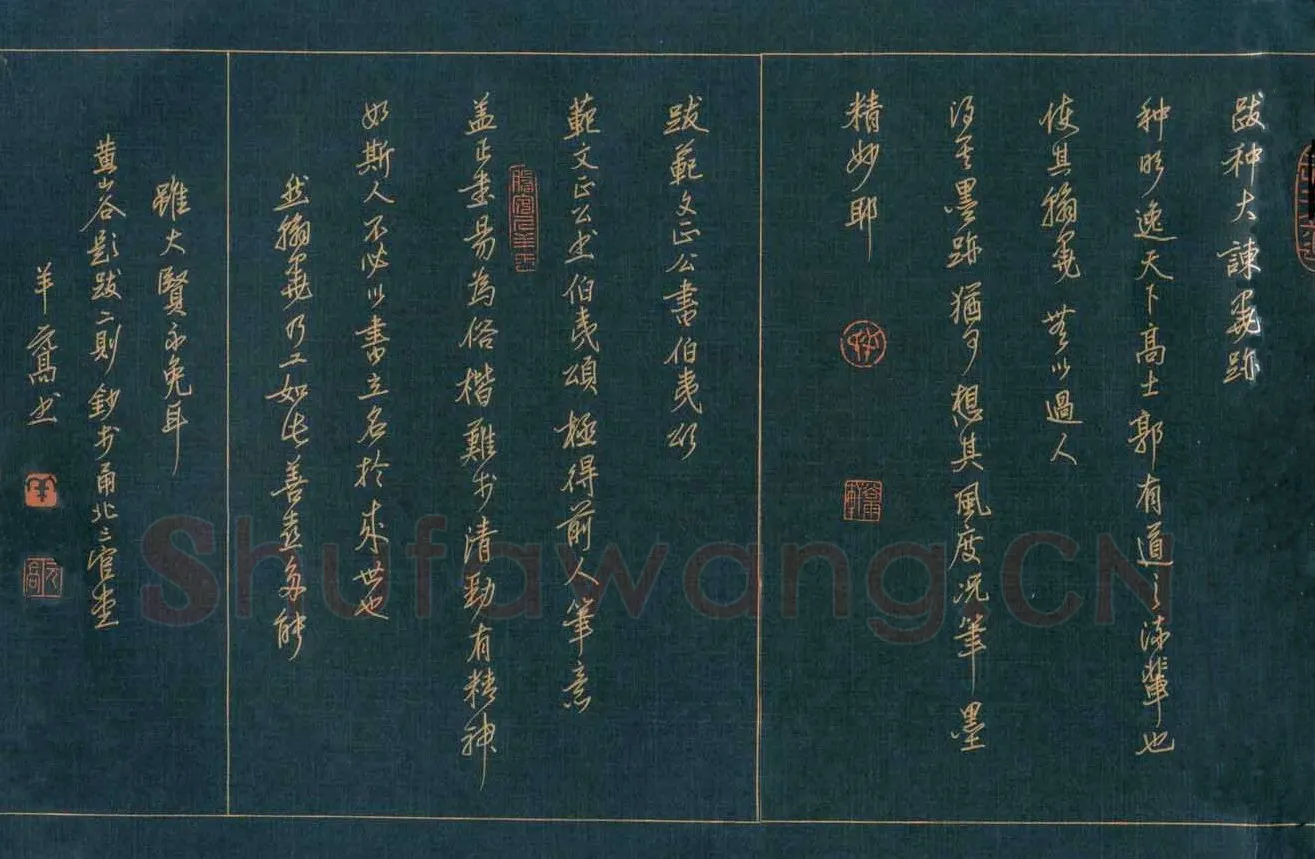 跋种大諫墨跡
种明逸天下高士郭有道之流輩也
使其翰墨無以過人
得其墨跡猶可想其風度況筆墨
精妙耶
跋範文正公書伯夷頌
範文正公書伯夷頌極得前人筆意
盖正書易為俗楷難於清勁有精神
如斯人不必以書立名於來世也
然翰墨乃工如此善喜多能
雖大賢不免耳
黄山谷題跋二則鈔書甬北三官堂
羊元高書
Shufawang.CN